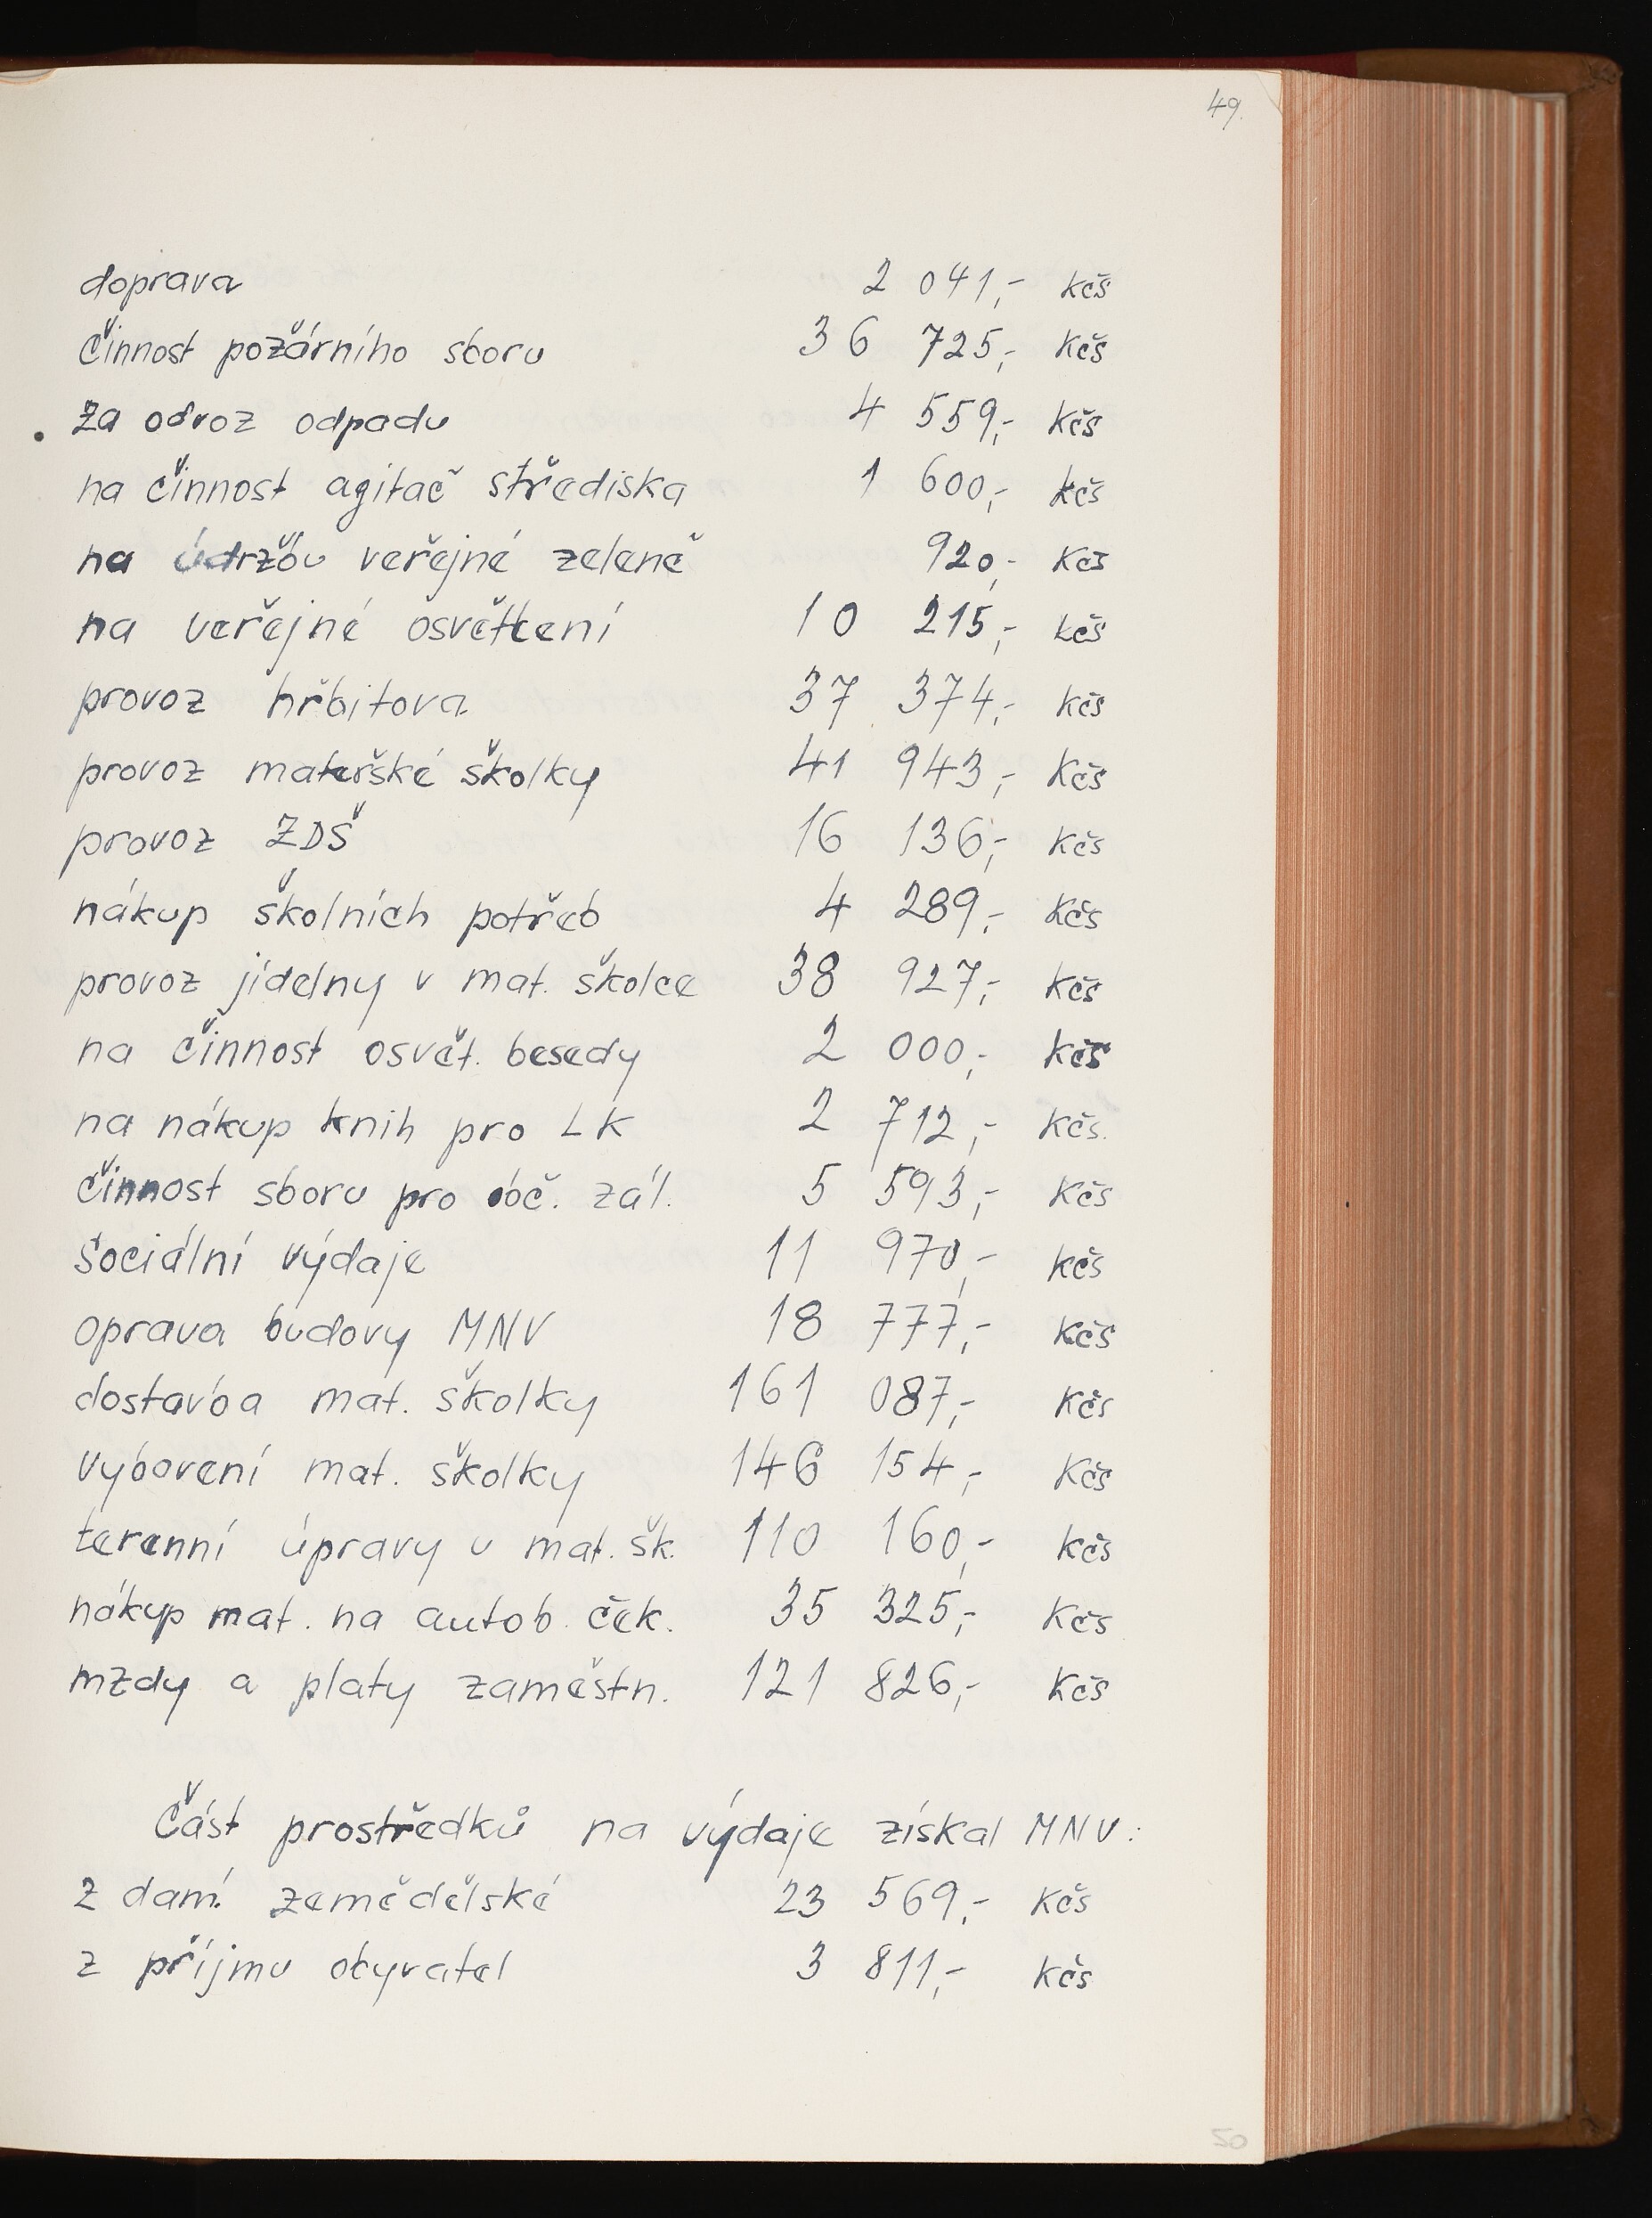 49.
doprava 2 041,- Kčs
Činnost požárního sboru 36 725,- Kčs
Za odvoz odpadu 4 559,- Kčs
na činnost agitač střediska 1 600,- Kčs
na údržbu veřejné zeleně 920,- Kčs
na veřejné osvětlení 10 215,- Kčs
provoz hřbitova 37 374,- Kčs
provoz mateřské školky 41 943,- Kčs
provoz ZDŠ 16 136,- Kčs
nákup školních potřeb 4 289,- Kčs
provoz jídelny v mat. školce 38 927,- Kčs
na činnost osvět. besedy 2 000,- Kčs
na nákup knih pro LK 2 712,- Kčs.
činnost sboru pro obč. zál. 5 593,- Kčs
Sociální výdaje 11 970,- Kčs
oprava budovy MNV 18 777,- Kčs
dostavba mat. školky 161 087,- Kčs
vybavení mat. školky 146 154,- Kčs
terenní úpravy u mat. šk. 110 160,- Kčs
nákup mat. na autob. ček. 35 325,- Kčs
mzdy a platy zaměstn. 121 826,- Kčs
Část prostředků na výdaje získal MNV:
z daní zemědělské 23 569,- Kčs
z příjmu obyvatel 3 811,- Kčs
50